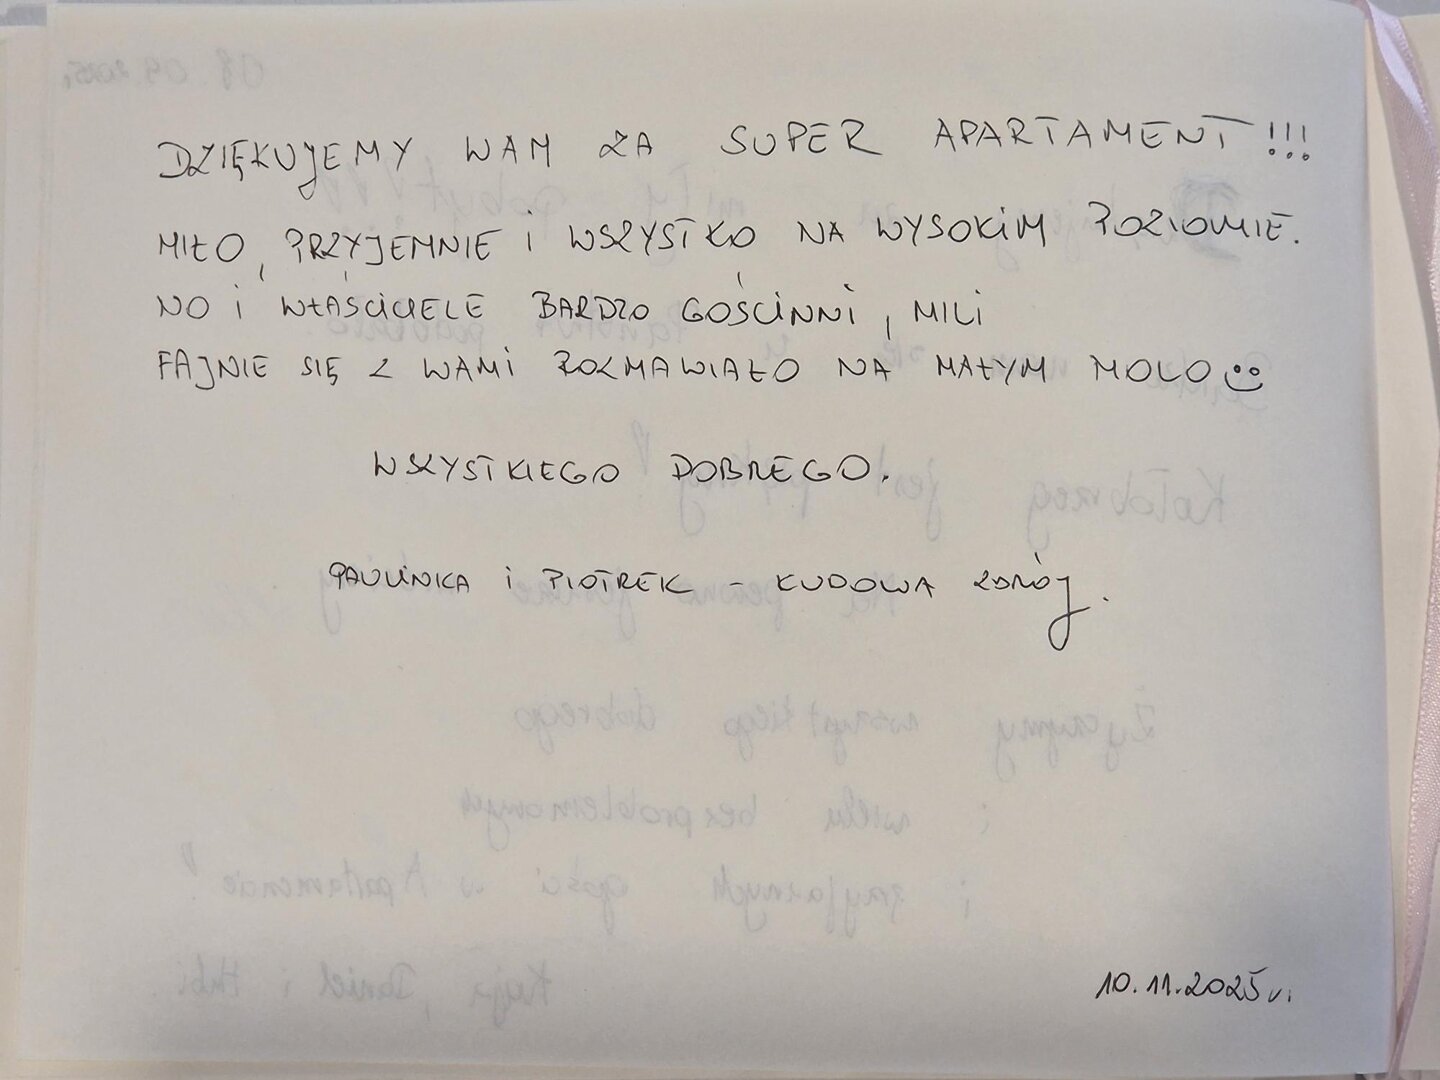 DZIĘKUJEMY WAM ZA SUPER APARTAMENT!!!
MIŁO, PRZYJEMNIE i WSZYSTKO NA WYSOKIM POZIOMIE.
NO i WŁAŚCICIELE BARDZO GOŚCINNI, MILI
FAJNIE SIĘ Z WAMI ROZMAWIAŁO NA MAŁYM MOLO☺
WSZYSTKIEGO DOBREGO.
PAULINKA i PIOTREK – KUDOWA ZDRÓJ.
10.11.2025r.